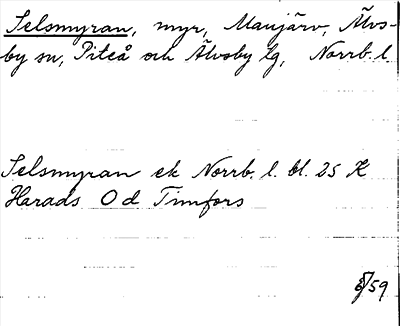 Selsmyran, myr, Manjärv, Älvs-
by sn, Piteå och Älvsby lg, Norrb. l
Selsmyran ek Norrb. l. bl. 25 K
Harads Od Timfors
/59